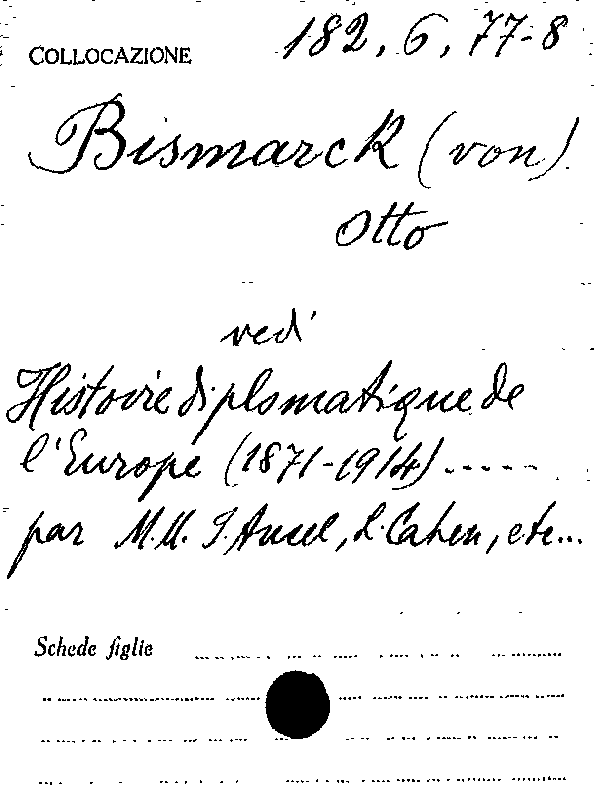 COLLOCAZIONE 182. 6. 77-8
Bismarck (von)
Otto
vedi
Histoire diplomatique de
l'Europe (1871-1914) -----
par M.M. J. Ancel, L. Cahen, etc...
Schede figlie